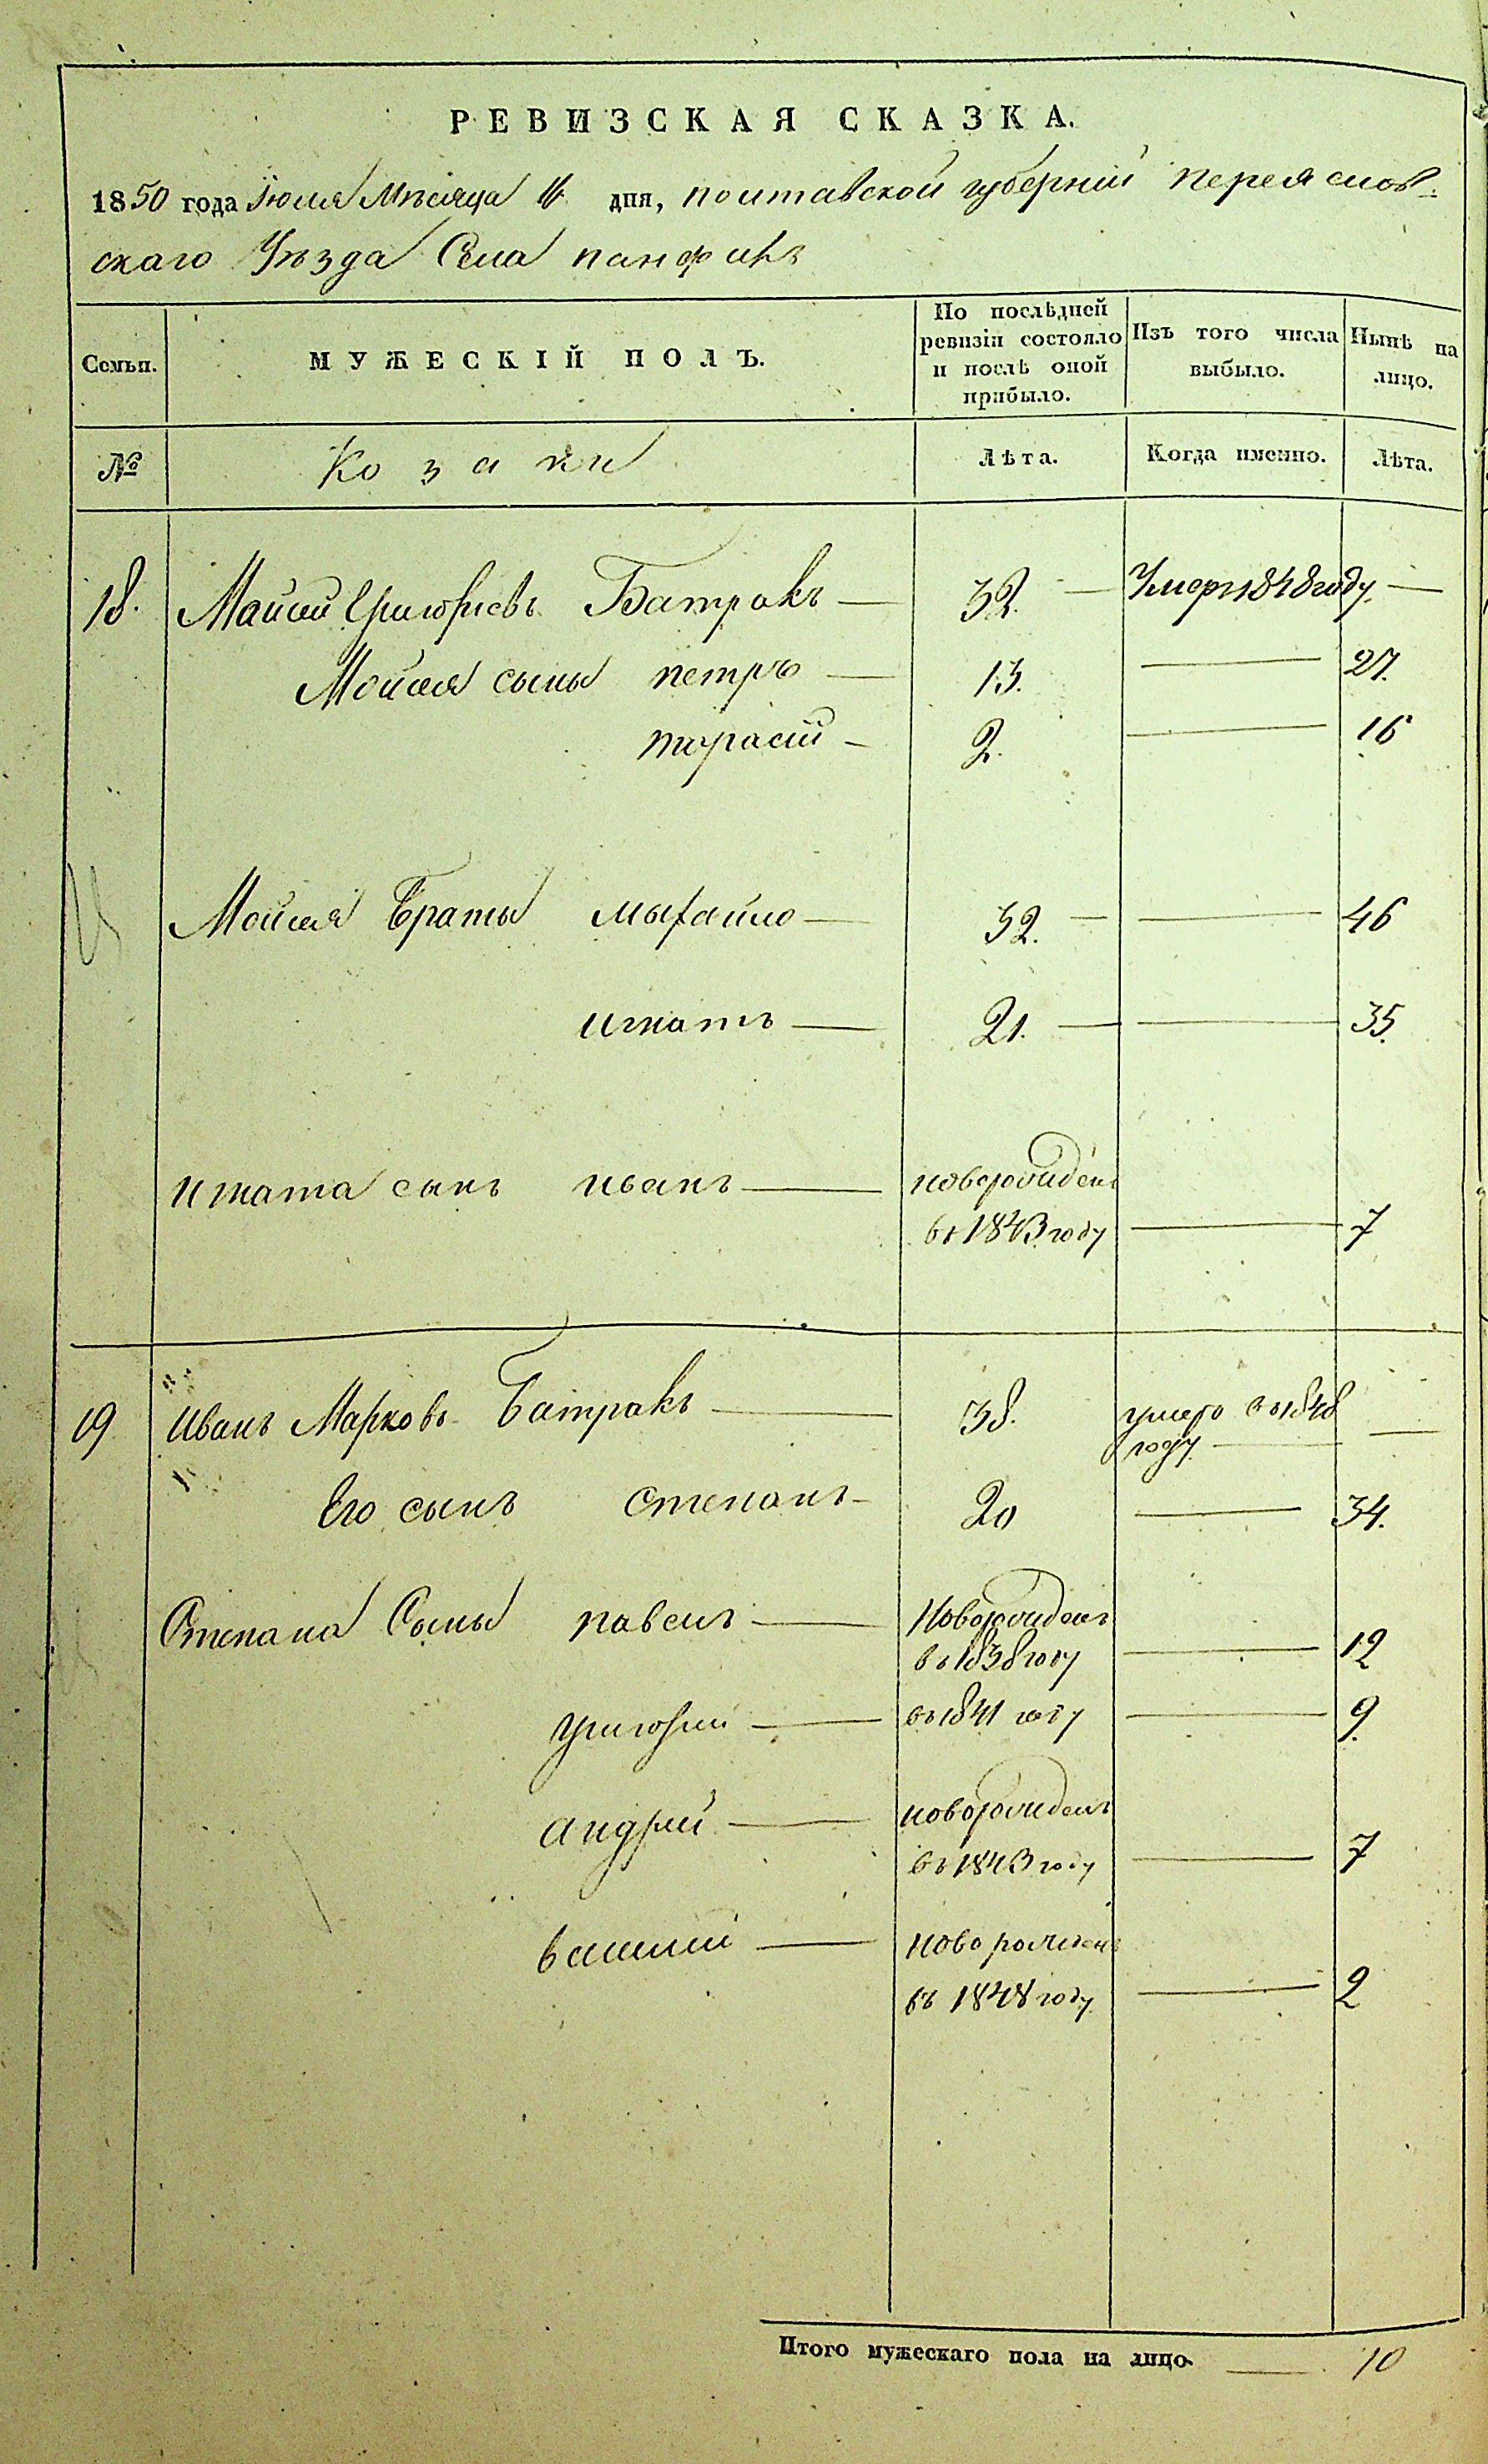 РЕВИЗСКАЯ СКАЗКА.
1850 года Июля Мѣсяца дня, полтавской губерніи переяслов-
скаго Уѣзда Села панфилъ
Семьи.
МУЖЕСКІЙ ПОЛЪ.
По послѣдней ревизіи состояло и послѣ оной прибыло.
Изъ того числа выбыло.
Нынѣ на лицо.
№ Козаки Лѣта. Когда именно. Лѣта.
18. Мойсей Григорьевъ Батракъ — 32. — Умеръ 1848 году. —
Мойсея сыны петръ — 13. — 27.
тарасій — 2. — 16
Мойсея Браты мыхайло — 32. — — 46
игнатъ — 21. — — 35.
игната сынъ иванъ — новорожденъ
въ 1843 году — 7
19 иванъ Марковъ Батракъ — 38. умеръ въ 1848
году. — —
Его сынъ степанъ — 20 — 34.
Степана Сыны павелъ — Новорожденъ
въ 1838 году — 12
григорій — въ 1841 году — 9.
андрей — новорожденъ
въ 1843 году — 7
василий — новорожденъ
въ 1848 году — 2
Итого мужескаго пола на лицо — 10